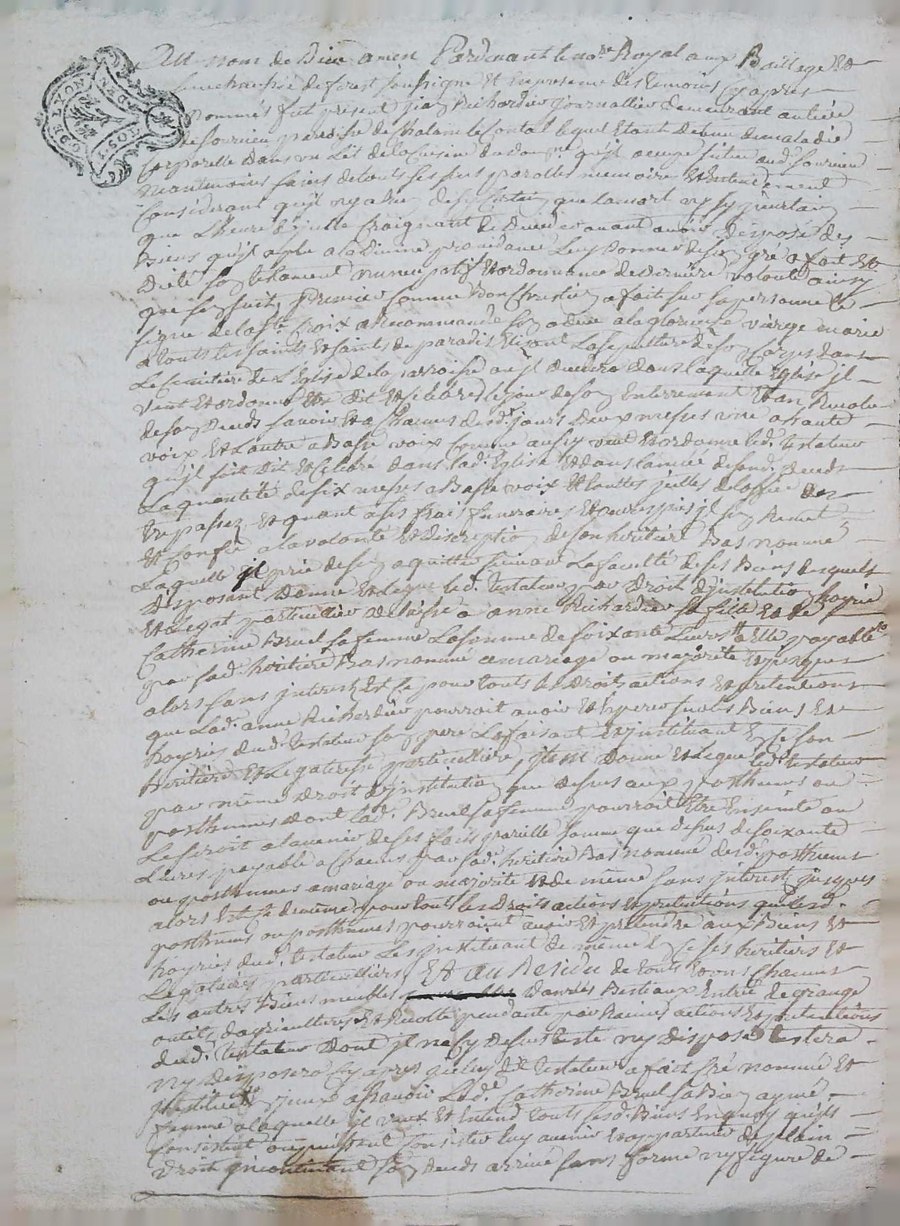 GDE LYON
DEN
Au nom de Dieu amen Pardevant le nore Royal aux Baillage et
senechaussée de forest soussigné Et en presence des temoins cy apres
nommés fut present Jean Richardier journallier demeurant au lieu
de fournier parroisse de Chalain le Contal lequel Etant detenu de maladie
corporelle dans un Lit de la Cuisine du qu'il occupe situé aud. fournier
neantmoins sain de touts ses sens parolles memoire Et Entendement
Considerant qu'il ny a rien de sy Certain que la mort ny sy incertain
que L'heure d'icelle Craignant de Deceder avant avoir disposé des
Biens qu'il a plu a la Divine providance Luy Donner de son gré a fait Et
Dicté son testament nuncupatif Et ordonnance de Derniere volonté ainsy
que s'en suit, Premier Comme Bon Chrestien a fait sur sa personne le
signe de la ste Croix a Recommandé son ame a la glorieuse vierge marie
a touts les saints Et saintes de paradis Elisant La sepulture de son Corps dans
Le Cimitiere de L'Eglise de la parroisse ou il decedera dans laquelle Eglise il
veut Et ordonne Etre dit Et celebré le jour de son Enterrement Et an Revolu
de son Deceds savoir Et a Chacun desd. jours Deux messes une a haute
voix Et L'autre a Basse voix Comme aussy veut Et ordonne led. testateur
qu'il soit Dit Et Celebré dans lad. Eglise Et dans l'année de sond. Deceds
La quantité de six messes a Basse voix Et touttes jcelles de l'office des
trepassez Et quant a ses frais funeraires Et œuvres pies jl s'en Remet
Et Confie a la volonté Et discretion de son heritiere Bas nommée
Laquelle jl prie de s'en aquitter suivant La faculté de ses Biens desquels
Disposant Donne Et Legue led. testateur par Droit d'institution hoyrie
Et Legat particullier delaisse a anne Richardier sa fille Et de
Catherine Bruel sa femme La somme de soixante Livres a Elle payable
par sad. heritiere Bas nommée a mariage ou majorité Et jusques
alors sans jnterest Et ce pour touts les Droits actions Et pretentions
que Lad. anne Richardier pourrait avoir Et Esperer sur les Biens Et
hoyries dud. testateur son pere La faisant Et jnstituant En ce son
heritiere Et Legataresse particulliere, jtem Donne Et Legue led. testateur
par même Droit d'jnstitution que dessus aux posthumes ou
posthumes dont lad. Bruel sa femme pourrait Etre Enseinte ou
Le seroit a l'avenir de ses faits pareille somme que dessus de soixante
Livres payable a Chacun par sad. heritiere Bas nommée desd. posthumes
ou posthumes a mariage ou majorité Et de même sans jnterest jusques
alors Et ce de même pour touts les Droits actions Et pretentions que lesd.
posthumes ou posthumes pourraient avoir Et pretendre aux Biens Et
hoyries dud. testateur Les jnstituant de même En ce ses heritiers Et
Legataires particulliers Et au Residu de touts Et uns Chacuns
Les autres Biens meubles danrées Bestiaux Entrée de grange
outils d'agriculture Et Recolte pendante par Racines actions Et pretentions
dud. testateur Dont jl n'a cy dessus testé ny disposé testera
ny disposera cy apres jceluy dt testateur a fait Créé nommé Et
jnstitué Lade Catherine Bruel sa Bien aymée
femme a laquelle jl veux Et Entend touts sesd. Biens En quoy qu'ils
Consistent ou puissent Consister luy avenir Et appartenir de plain
Droit jncontinant son Deceds arrivé sans forme ny figure de